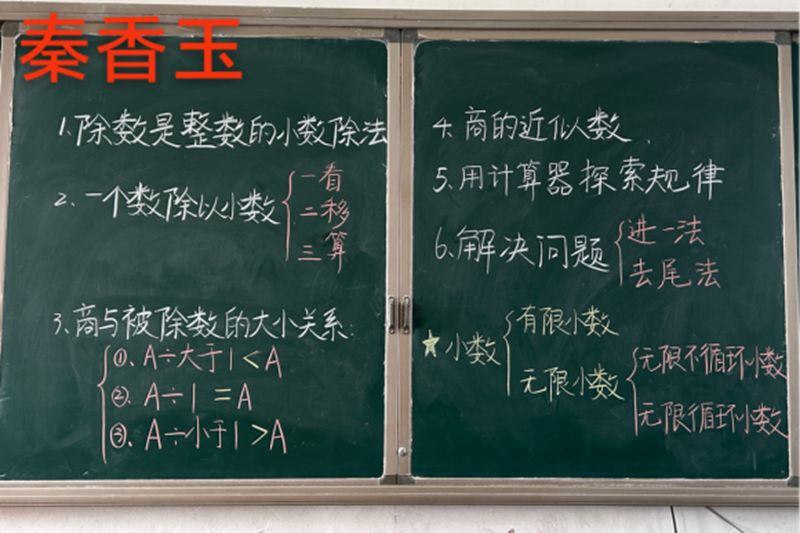 秦香玉
1.除数是整数的小数除法
2.一个数除以小数
一看
二移
三算
3.商与被除数的大小关系:
①.A÷大于1<A
②.A÷1=A
③.A÷小于1>A
4.商的近似数.
5.用计算器探索规律
6.解决问题
进一法
去尾法
★小数
有限小数
无限小数
无限不循环小数
无限循环小数